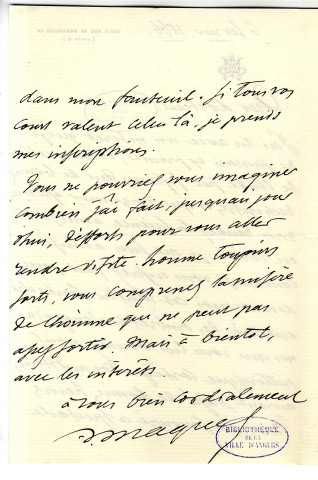 dans mon fauteuil. Si tous vos
cours valent celui là, je prends
mes inscriptions.
Vous ne pourriez vous imaginer
combien j'ai fait, jusqu'aujour
d'hui, d'efforts pour vous aller
rendre visite. homme toujours
forts, vous comprenez la misère
de l'homme que ne peut pas
assez sortir. Mais à bientôt,
avec les intérêts.
à vous bien cordialement
BIBLIOTHÈQUE
DE LA
VILLE D'ANGERS